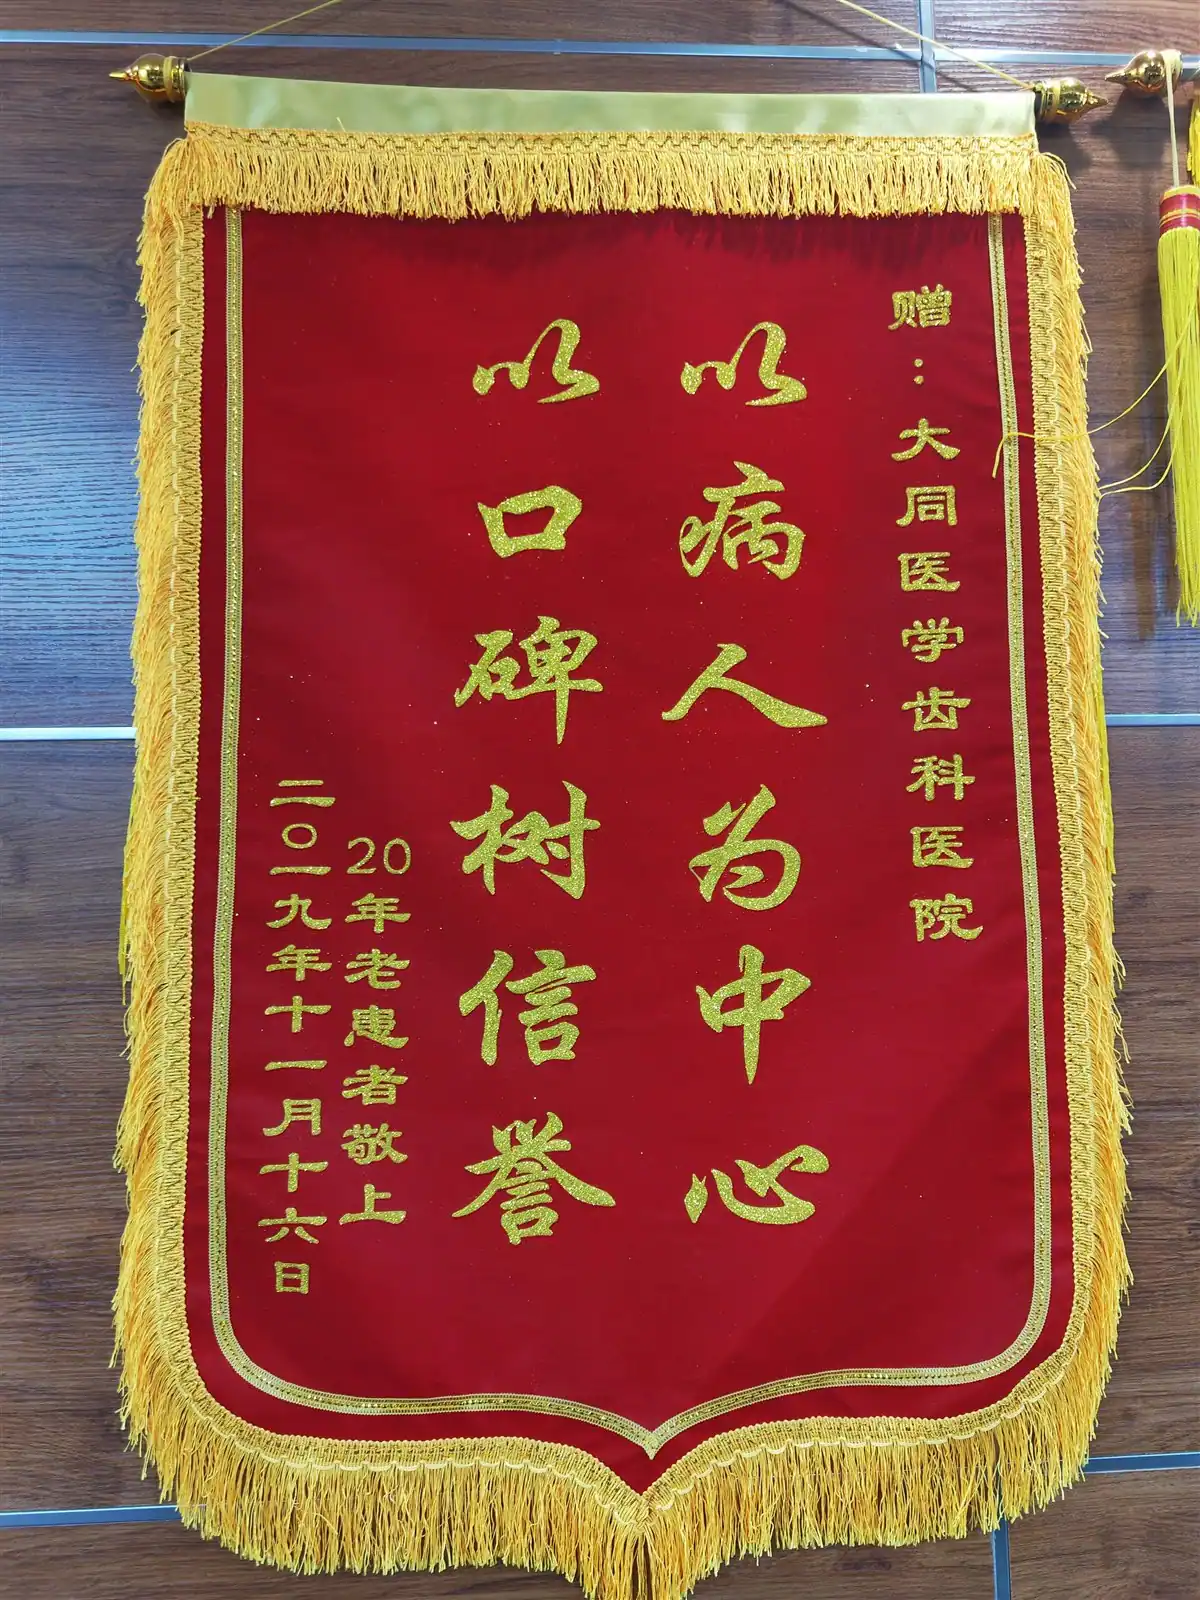 赠：大同医学齿科医院
以病人为中心
以口碑树信誉
20年老患者敬上
二〇一九年十一月十六日